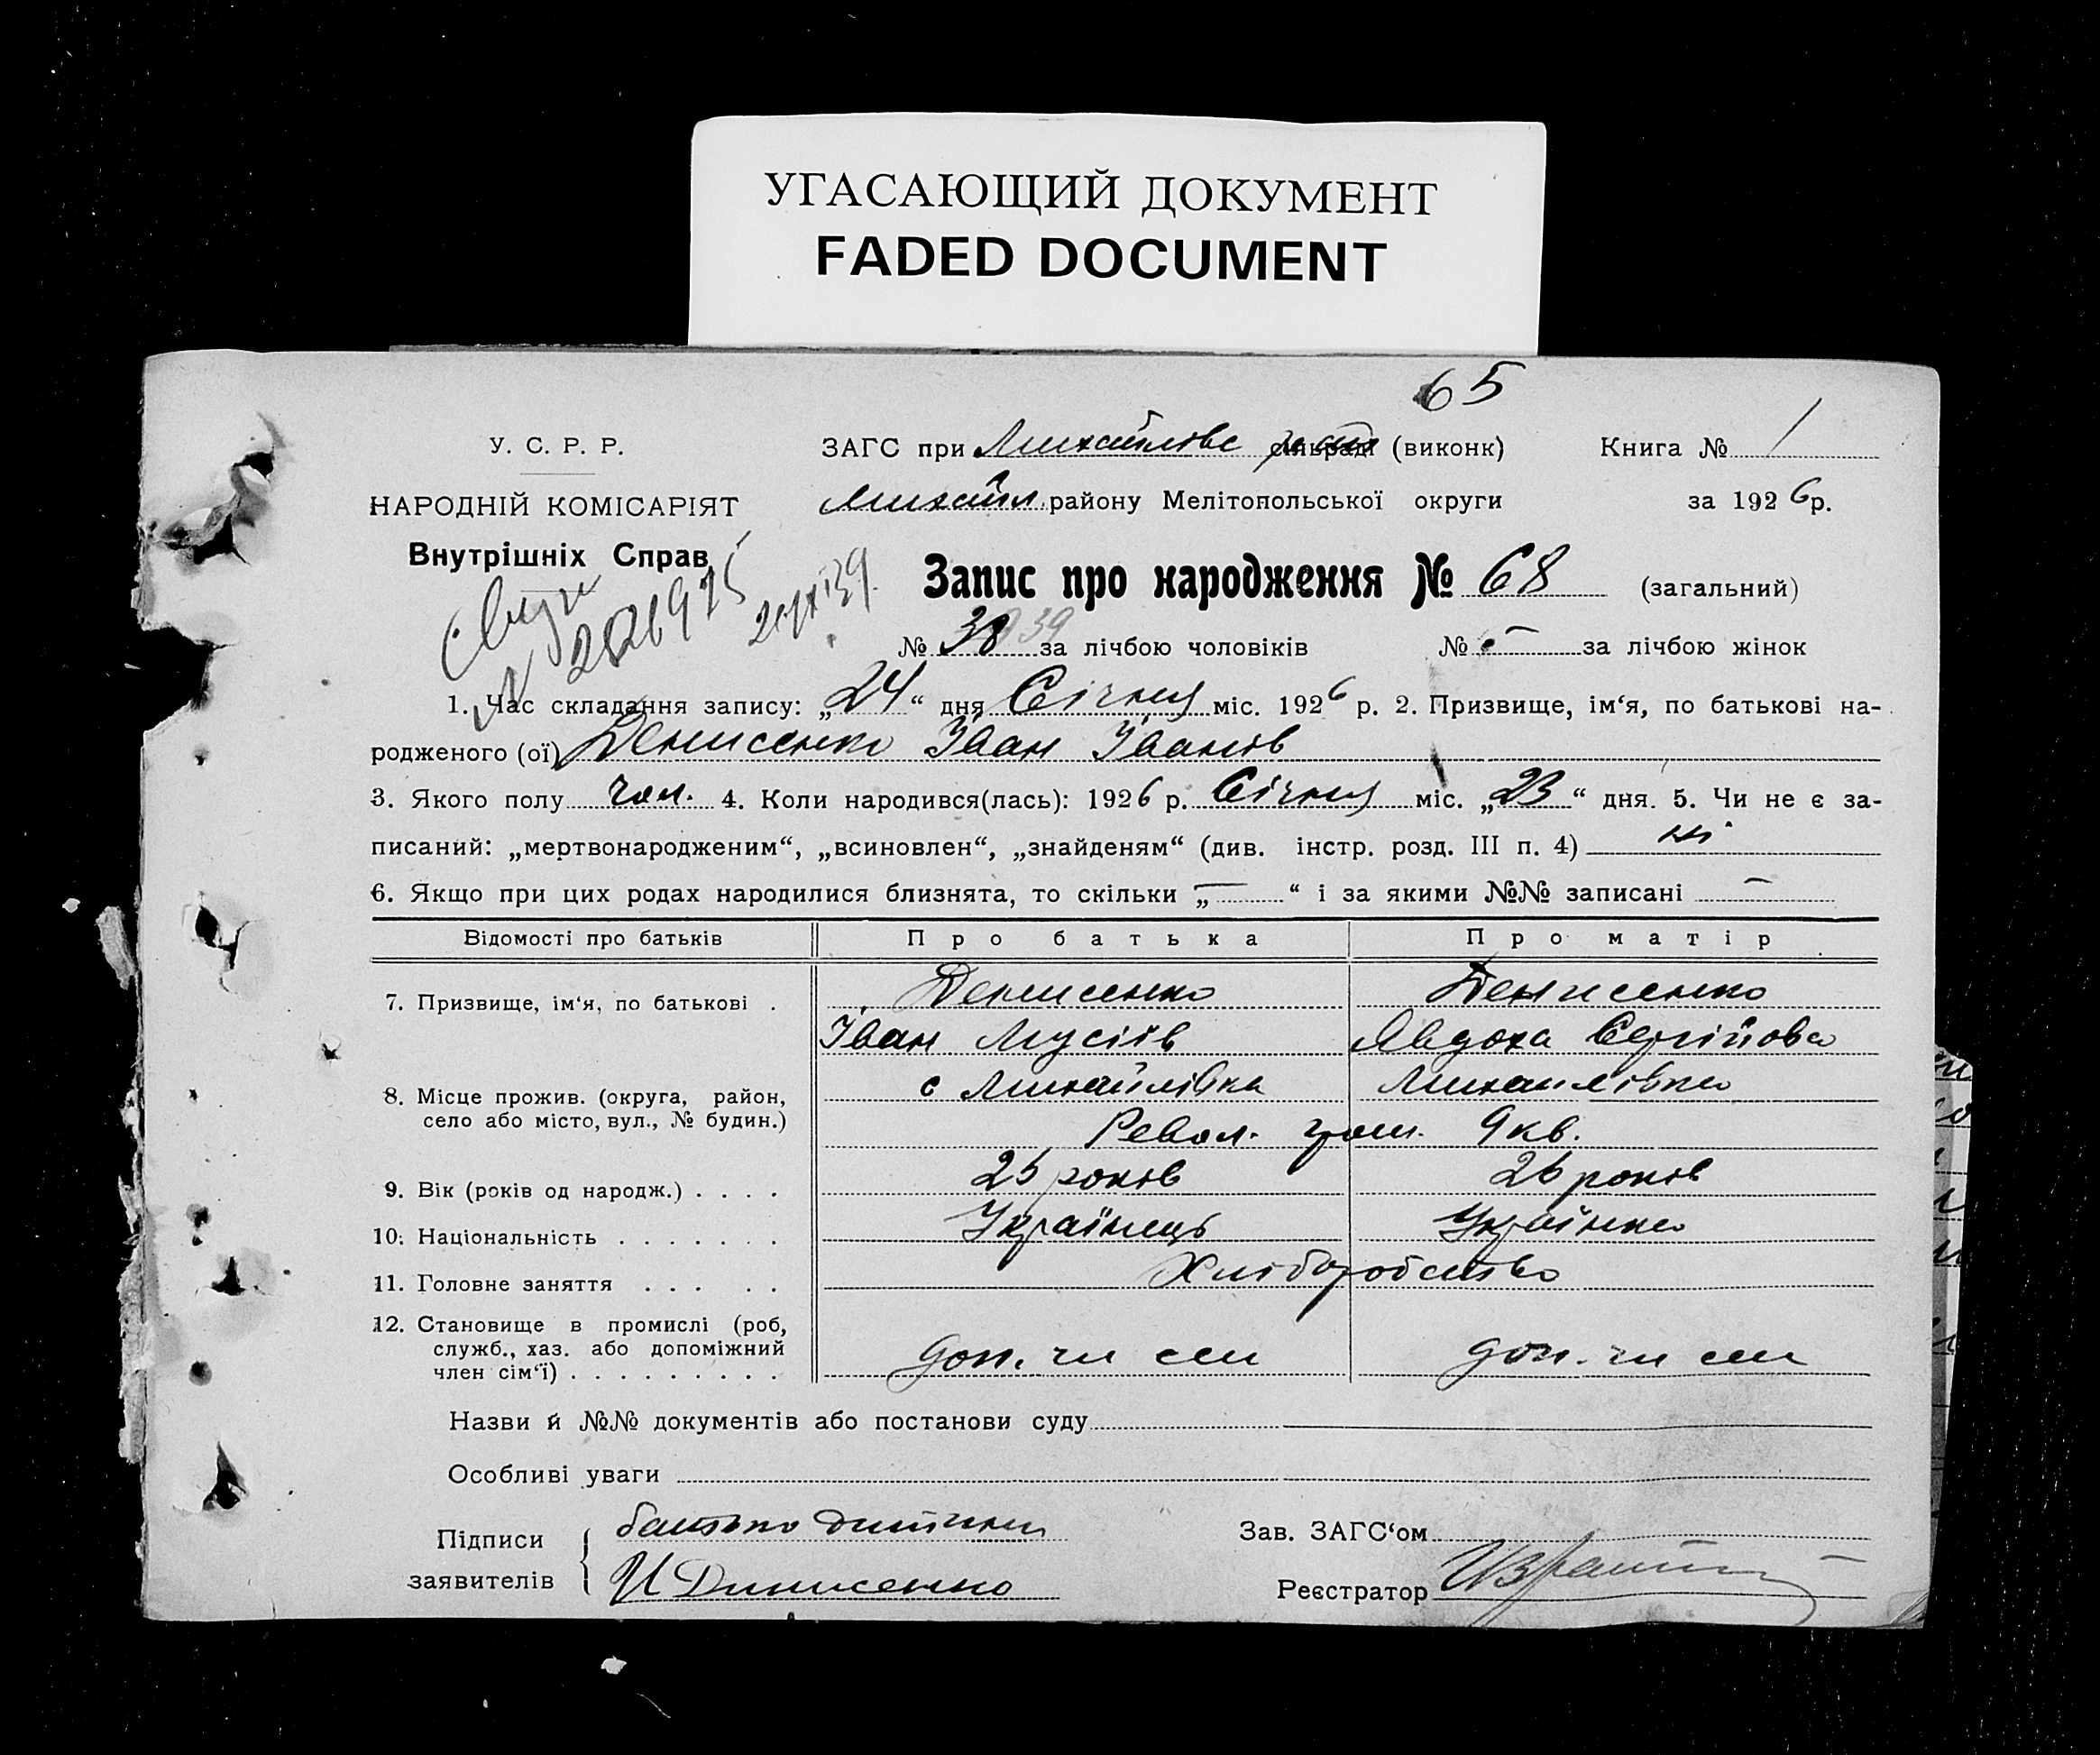 УГАСАЮЩИЙ ДОКУМЕНТ
FADED DOCUMENT
65
У. С. Р. Р.
ЗАГС при Михайлівс сільраді (виконк)
Книга № 1
НАРОДНІЙ КОМІСАРІЯТ
Михайл. району Мелітопольської округи
за 1926 р.
Внутрішніх Справ
Запис про народження № 68 (загальний)
№ 38 39 за лічбою чоловіків № – за лічбою жінок
1. Час складання запису: „24“ дня Січня міс. 1926 р. 2. Призвище, ім‘я, по батькові на-
родженого (ої) Денисенко Іван Іванів
3. Якого полу чол. 4. Коли народився(лась): 1926 р. Січня міс. „23“ дня. 5. Чи не є за-
писаний: „мертвонародженим“, „всиновлен“, „знайденям“ (див. інстр. розд. III п. 4) ні
6. Якщо при цих родах народилися близнята, то скільки „–“ і за якими №№ записані –
Відомості про батьків
Про батька
Про матір
7. Призвище, ім‘я, по батькові .
Денисенко
Денисенко
Іван Мусіїв
Явдоха Сергійова
8. Місце прожив. (округа, район,
село або місто, вул., № будин.)
с Михайлівка
Михайлівка
Револ. гром. 9 кв.
9. Вік (років од народж.) . . . .
25 років
26 років
10. Національність . . . . . . .
Українець
Українка
11. Головне заняття . . . . .
Хліборобство
12. Становище в промислі (роб,
служб., хаз. або допоміжний
член сім‘ї) . . . . . . . . .
доп. чл сем
доп. чл сем
Назви й №№ документів або постанови суду
Особливі уваги
Підписи
заявителів
батько дитини
И Динисенко
Зав. ЗАГС‘ом
Реєстратор